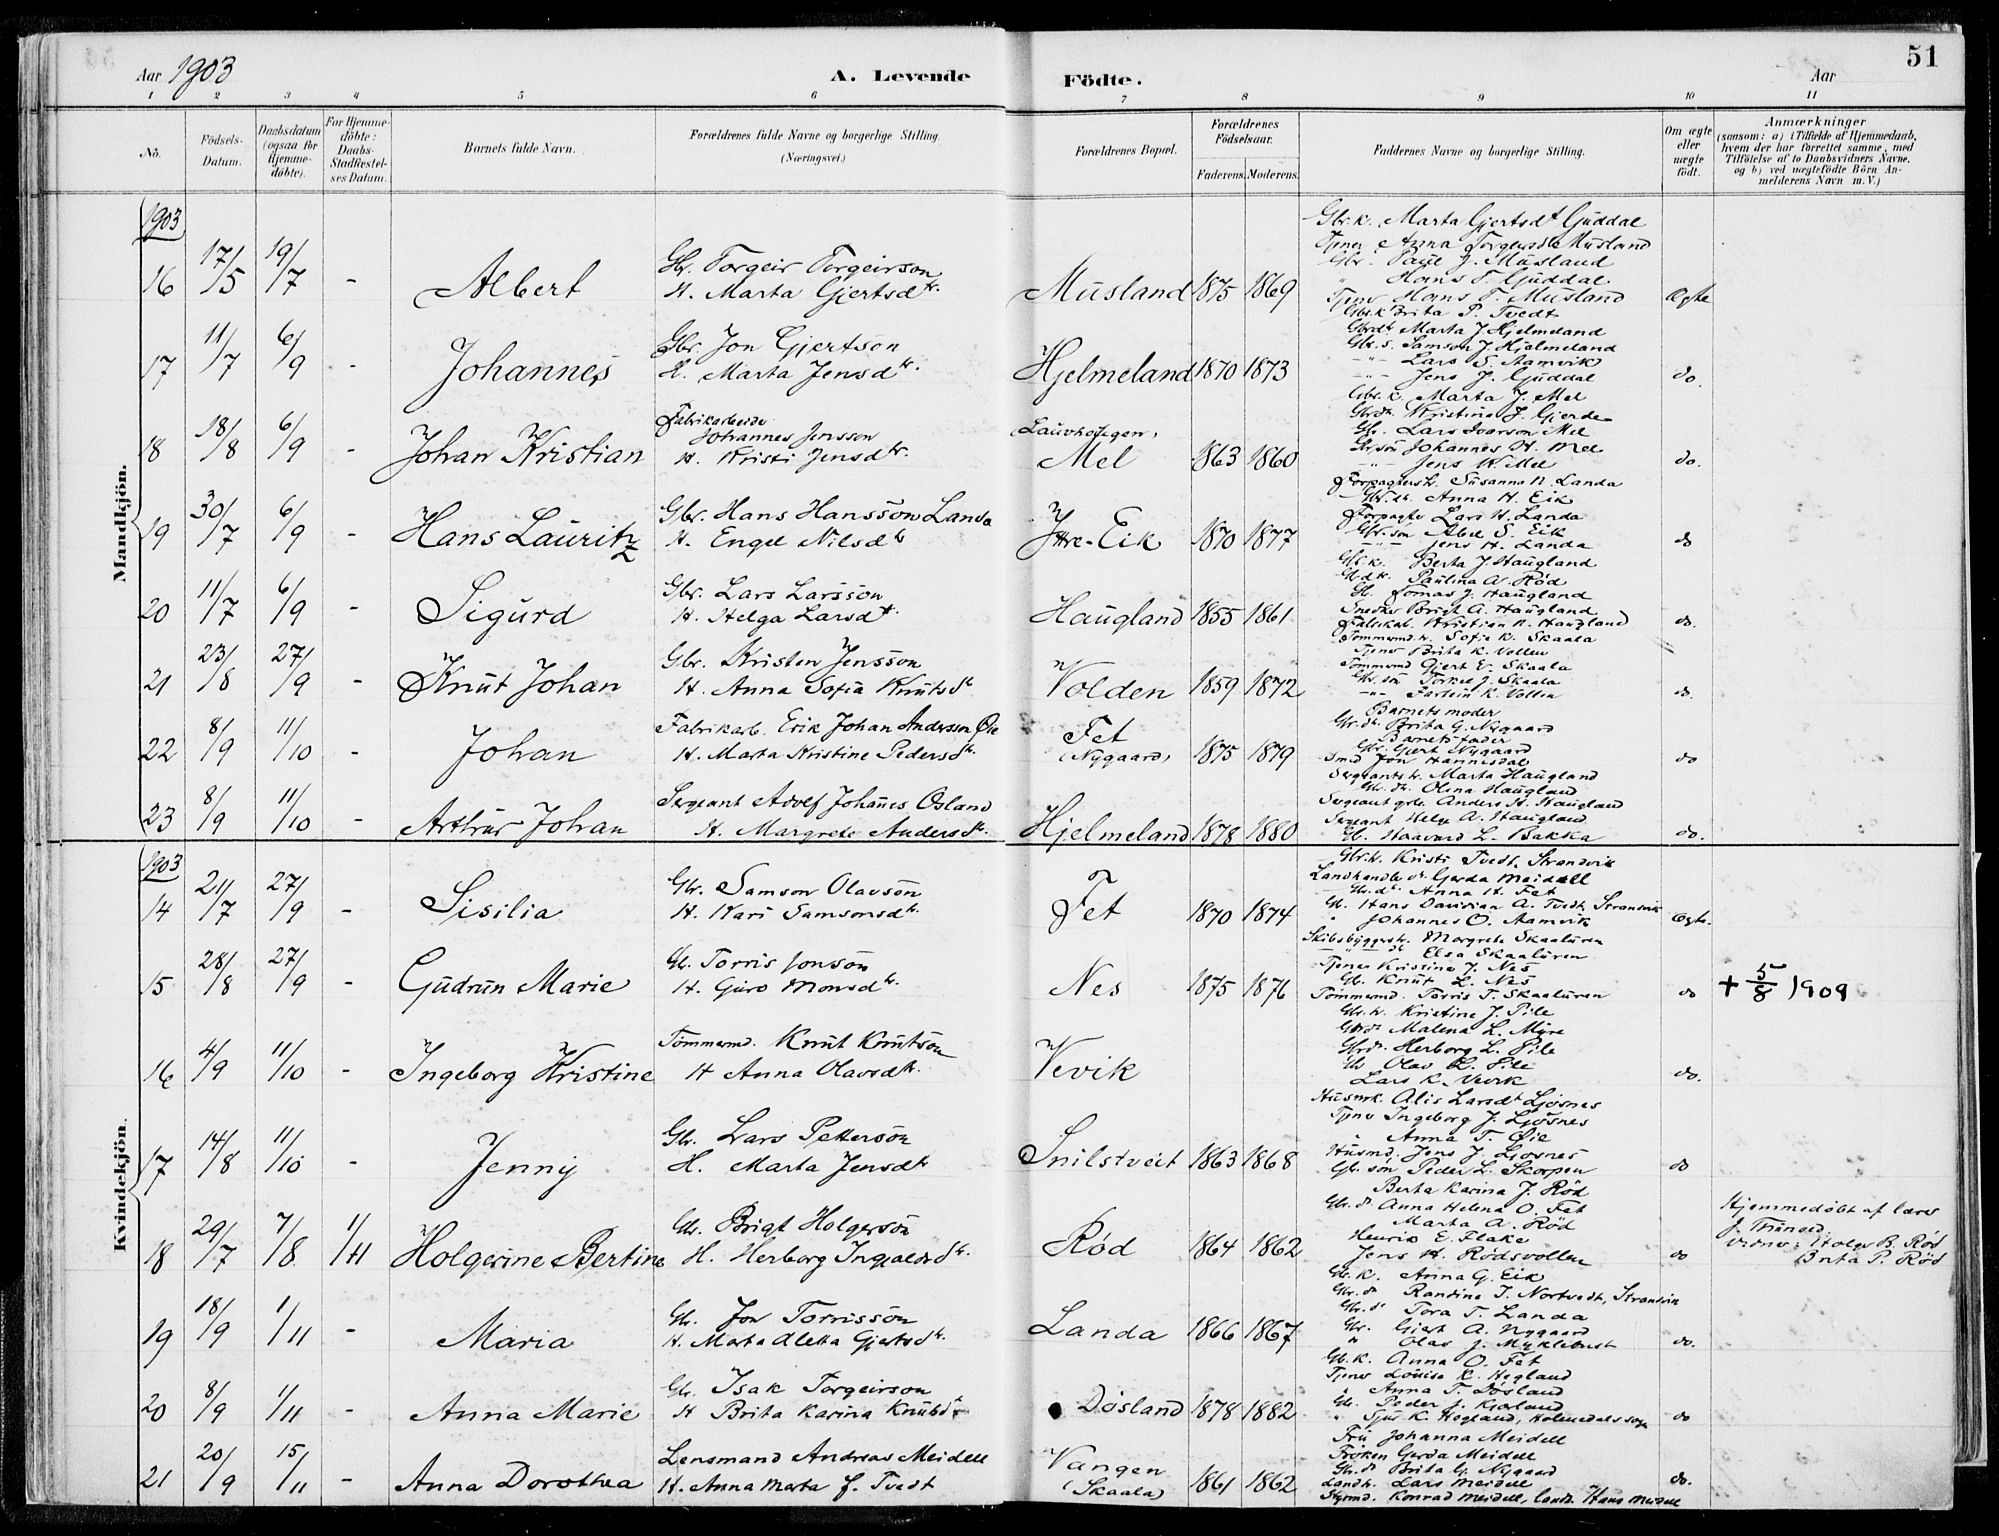 51
Aar 1903 A. Levende Födte. Aar
1 2 3 4 5 6 7 8 9 10 11
No.
Födsels-Datum.
Daabsdatum (ogsaa for Hjemme-döbte).
For Hjemme-döbte: Daabs-Stadfæstel-ses Datum.
Barnets fulde Navn.
Forældrenes fulde Navne og borgerlige Stilling. (Næringsvei.)
Forældrenes Bopæl.
Forældrenes Födselsaar.
Faderens. Moderens.
Faddernes Navne og borgerlige Stilling.
Om ægte eller uægte födt.
Anmærkninger
(saasom: a) i Tilfælde af Hjemmedaab,
hvem der har forrettet samme, med
Tilföielse af to Daabsvidners Navne,
og b) ved uægtefödte Börn An-
melderens Navn m. V.)
Mandkjön.
1903
16 17/5 19/7 - Albert
Gbr. Torgeir Torgeirson
H. Marta Gjertsdtr.
Musland 1875 1869
Gbr.k. Marta Gjertsdt Guddal
Tjener Anna Torgersdtr Musland
Gbr. Paul J. Musland
" Hans T. Guddal
Tjener Hans T. Musland
Ægte
17 11/7 6/9 - Johannes
Gbr. Jon Gjertson
H. Marta Jensdtr.
Hjelmeland 1870 1873
Gbr.k Brita P. Tvedt
Gbrdtr Marta J. Hjelmeland
Gbr.s. Samson J. Hjelmeland
-"- Lars S. Aamvik
-"- Jens J. Guddal
do.
18 18/8 6/9 - Johan Kristian
Fabrikarbeider
Johannes Jensson
H. Kristi Jensdtr.
Mel 1863 1860
Gbr.k. Marta J. Mel
Gbrdtr. Kristina J. Gjerde
Gbr. Lars Ivarson Mel
Gbr.søn Johannes H. Mel
-"- Jens K. Mel
do.
19 30/7 6/9 - Hans Lauritz
Gbr. Hans Hansson Landa
H. Engel Nilsdtr
Ytre-Eik 1870 1877
Forpagterk. Susanna N. Landa
Gbr.dtr. Anna H. Eik
Forpagter Lars H. Landa
Gbr.søn Abel S. Eik
-"- Jens H. Landa
do
20 11/7 6/9 - Sigurd
Gbr. Lars Larsson
H. Helga Larsdtr.
Haugland 1855 1861
Gbr.k. Berta J. Haugland
Gbr.dtr. Paulina A. Rød
Gbr. Tomas J. Haugland
Snedker Brigt A. Haugland
Fabrikab. Kristian K. Haugland
do.
21 23/8 27/9 - Knut Johan
Gbr. Kristen Jensson
H. Anna Sofia Knutsdtr
Volden 1859 1872
Tømmermd.k. Sofie K. Skaala
Tjener Brita K. Vollen
Tømmermd Gjert E. Skaala
Gbr.søn Torkel J. Skaala
do.
22 8/9 11/10 - Johan
Fabrikarb. Erik Johan Andersson Øie
H. Marta Kristine Pedersdtr.
Fet
(Nygaard) 1875 1879
Barnets moder
Gbr.dtr. Brita G. Nygaard
Barnets fader
Gbr. Gjert Nygaard
Smed Jon Hannisdal
do
23 8/9 11/10 - Arthur Johan
Sergeant Adolf Johanes Osland
H. Margrete Andersdtr.
Hjelmeland 1878 1880
Sergeantk. Marta Haugland
Gbr.dtr. Olina Haugland
Sergeant Anders H. Haugland
Sergeant Helge A. Haugland
Gbr. Haavard L. Bakka
do.
Kvindekjön.
1903
14 21/7 27/9 - Sisilia
Gbr. Samson Olavson
H. Kari Samsonsdtr.
Fet 1870 1874
Gbr.k. Kristi Tvedt, Strandvik
Landhandler dr. Gerda Meidell
Gbr.dtr. Anna H. Fet
Gbr. Hans Davidian A. Tvedt, Strandvik
" Johannes O. Aamvik
Ægte.
15 28/8 27/9 - Gudrun Marie
Gbr. Torris Jonson
H. Guro Monsdtr.
Nes 1875 1876
Skibsbyggerk. Margrete Skaaluren
-"- dtr Elsa Skaaluren
Tjener Kristina J. Nes
Gbr. Knut L. Nes
Tømmermd. Torris T. Skaaluren
do
+ 5/8 1909
16 4/9 11/10 - Ingeborg Kristine
Tømmermd. Knut Knutson
H Anna Olavsdtr.
Vevik
Gbr.k. Kristine J. Pile
Gbrdtr Malena L. Myre
Gbrdtr. Herborg L. Pile
Gbr Olav L. Pile
Lars K. Vevik
do.
17 14/8 11/10 - Jenny
Gbr. Lars Petterson
H. Marta Jensdtr
Snilstveit 1863 1868
Husmk. Alis Larsdt Ljosnes
Tjener Ingeborg J. Ljosnes
" Anna T. Øie
Husmd. Jens J. Ljosnes
Gbr.søn Peder L. Skorpen
do
18 29/7 7/8 1/11 Holgerine Bertine
Gbr. Brigt Holgerson
H. Herborg Ingvaldsdtr.
Rød 1864 1862
Berta Karina J. Rød
Gbr.dtr Anna Helena O. Fet
Marta A. Rød
Henrik E. Flake
Jens H. Rødsvollen
do
Hjemmedøbt af lærer
J. Trunad.
vidner: Holger B. Rød
Brita P. Rød
19 18/9 1/11 - Maria
Gbr. Jon Torrisson
H. Marta Aletta Gjertsdtr.
Landa 1866 1867
Gbr.k. Anna G. Eik
Gbr.dtr Randine T. Nortvedt, Strandvik
Gbr.dtr Tora T. Landa
Gbr. Gjert A. Nygaard
" Olav J. Myklebust
do.
20 8/9 1/11 - Anna Marie
Gbr. Isak Torgeirson
H Brita Karina Knutsdtr
Døsland 1878 1882
Gbr.k. Anna O. Fet
Tjener Louise K. Hegland
" Anna T. Døsland
Gbr. Peder J. Kjosland
" Sjur K. Hegland, Holmedals sogn
do
21 20/9 15/11 - Anna Dorothea
Lensmand Andreas Meidell
H. Anna Marta f. Tvedt
Vangen
(Skaala) 1861 1862
Fru Johanna Meidell
Frøken Gerda Meidell
Gbr.dtr Brita G. Nygaard
Landh. Lars Meidell
Styrmd. Konrad Meidell, Cand. Hans Meidell
do.